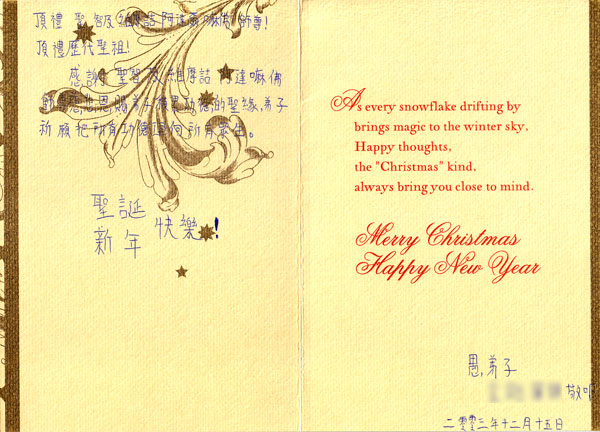 頂禮 聖智及維摩詰 阿達爾嘛佛 師尊!
頂禮歷代聖祖!
感謝 聖智及維摩詰 阿達嘛佛
師尊慈悲恩賜弟子積累功德的聖緣,弟子
祈願把所有功德迴向所有眾生。
聖誕
新年
快樂!
As every snowflake drifting by
brings magic to the winter sky,
Happy thoughts,
the "Christmas" kind,
always bring you close to mind.
Merry Christmas
Happy New Year
愚弟子
敬叩
二零零三年十二月十五日